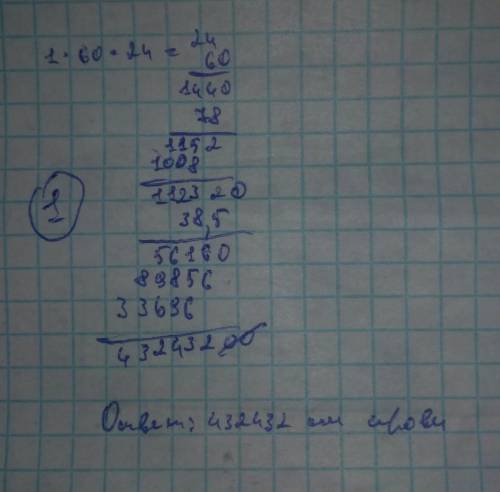 1 · 60 · 24 = 24
60
1440
78
1152
1008
112320
38,5
56160
89856
33696
43243200
1
Ответ: 432432 мл крови